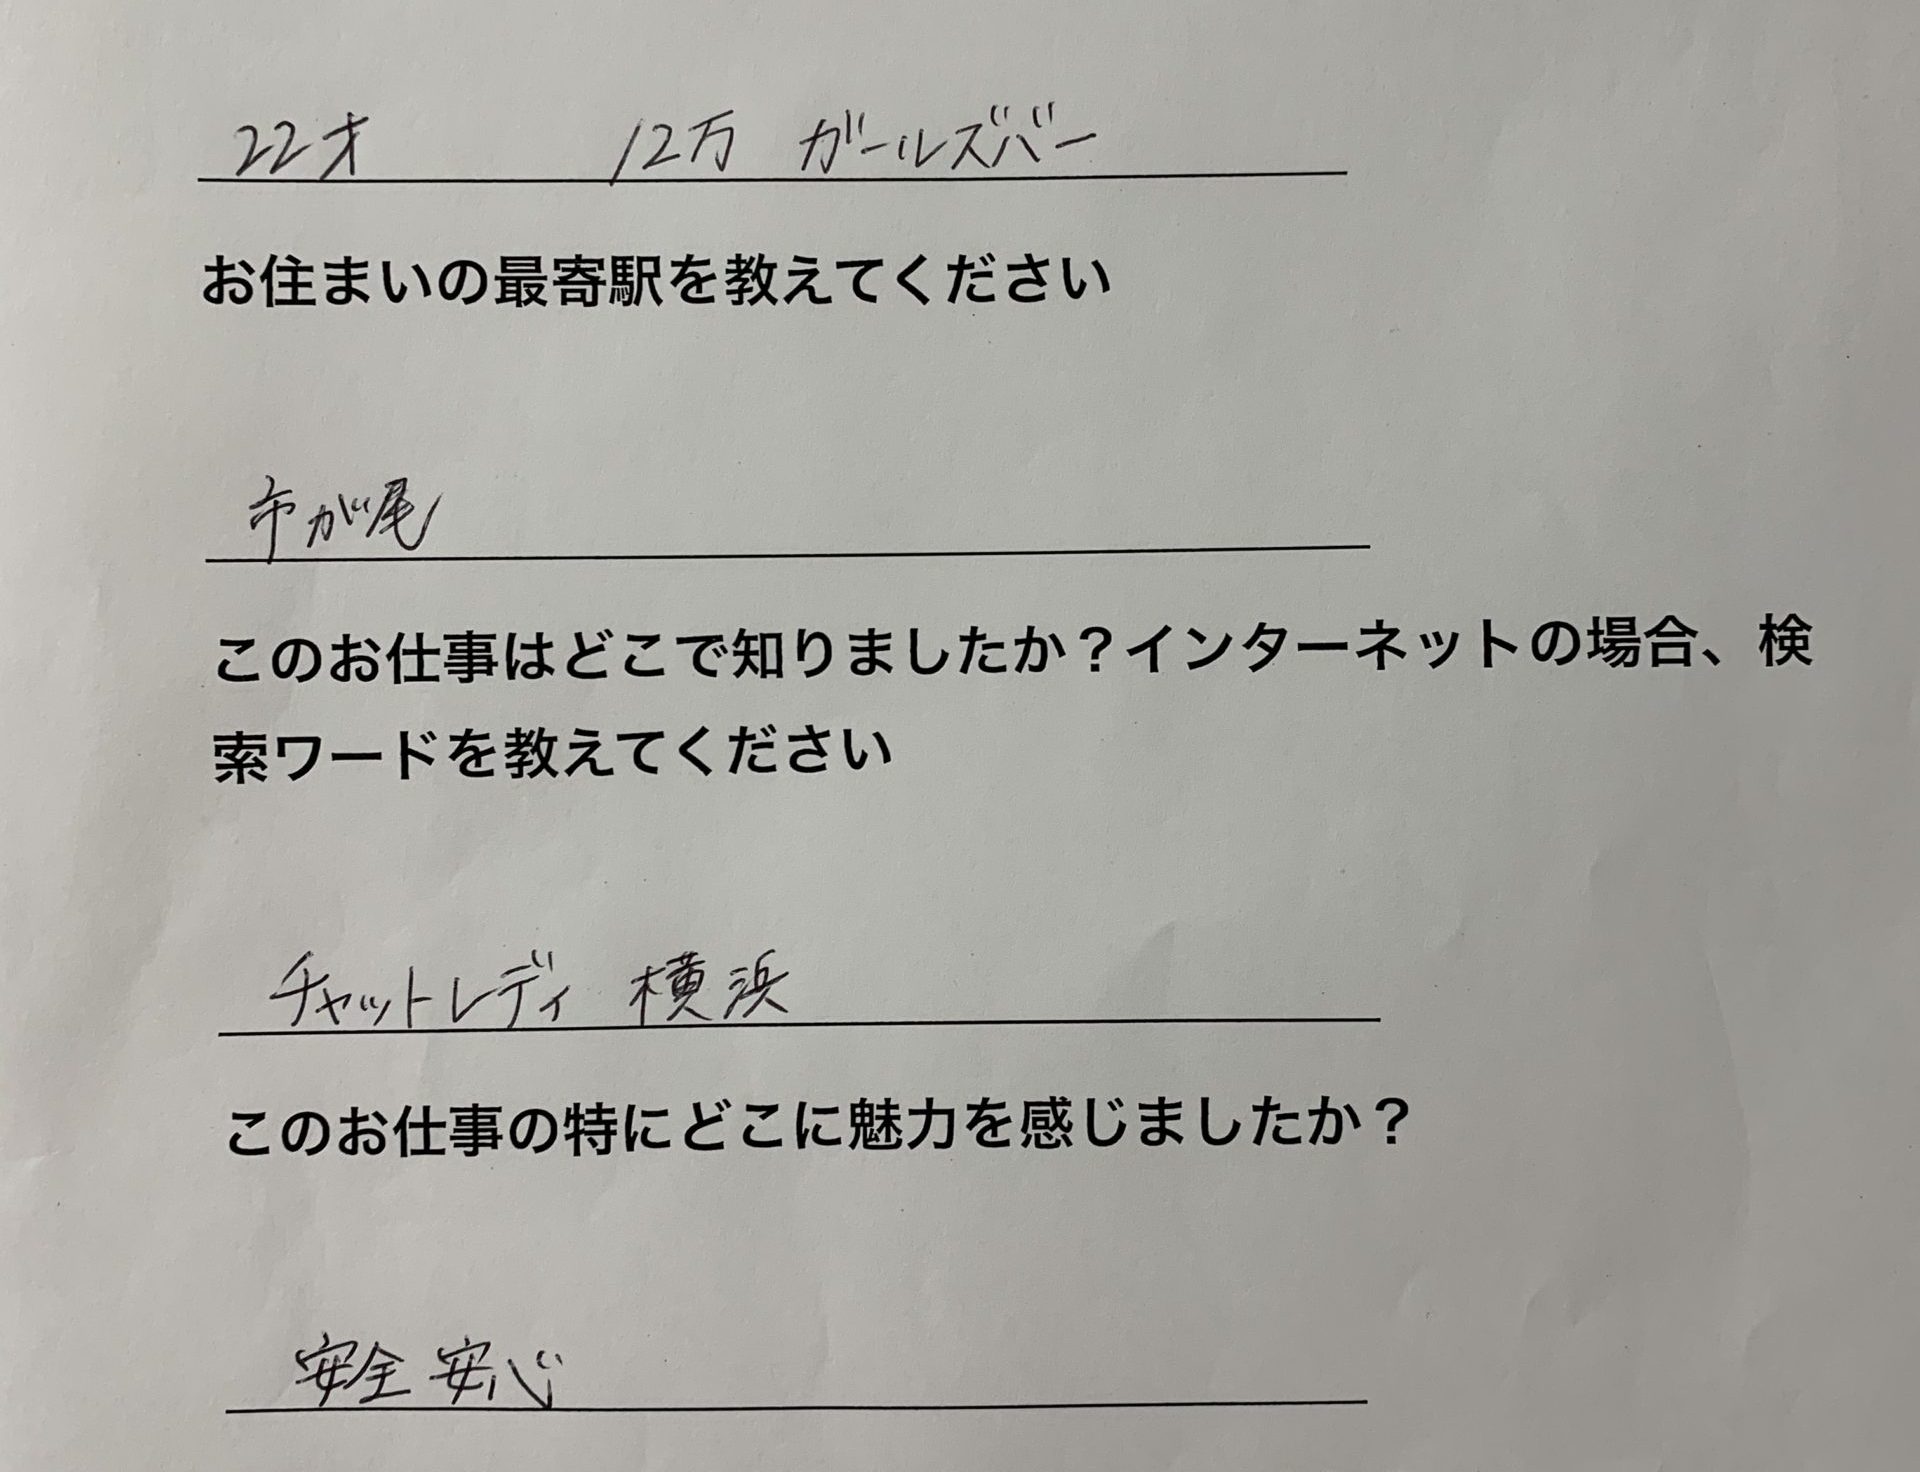 22才 12万 ガールズバー
お住まいの最寄駅を教えてください
市が尾
このお仕事はどこで知りましたか？インターネットの場合、検
索ワードを教えてください
チャットレディ 横浜
このお仕事の特にどこに魅力を感じましたか？
安全 安心